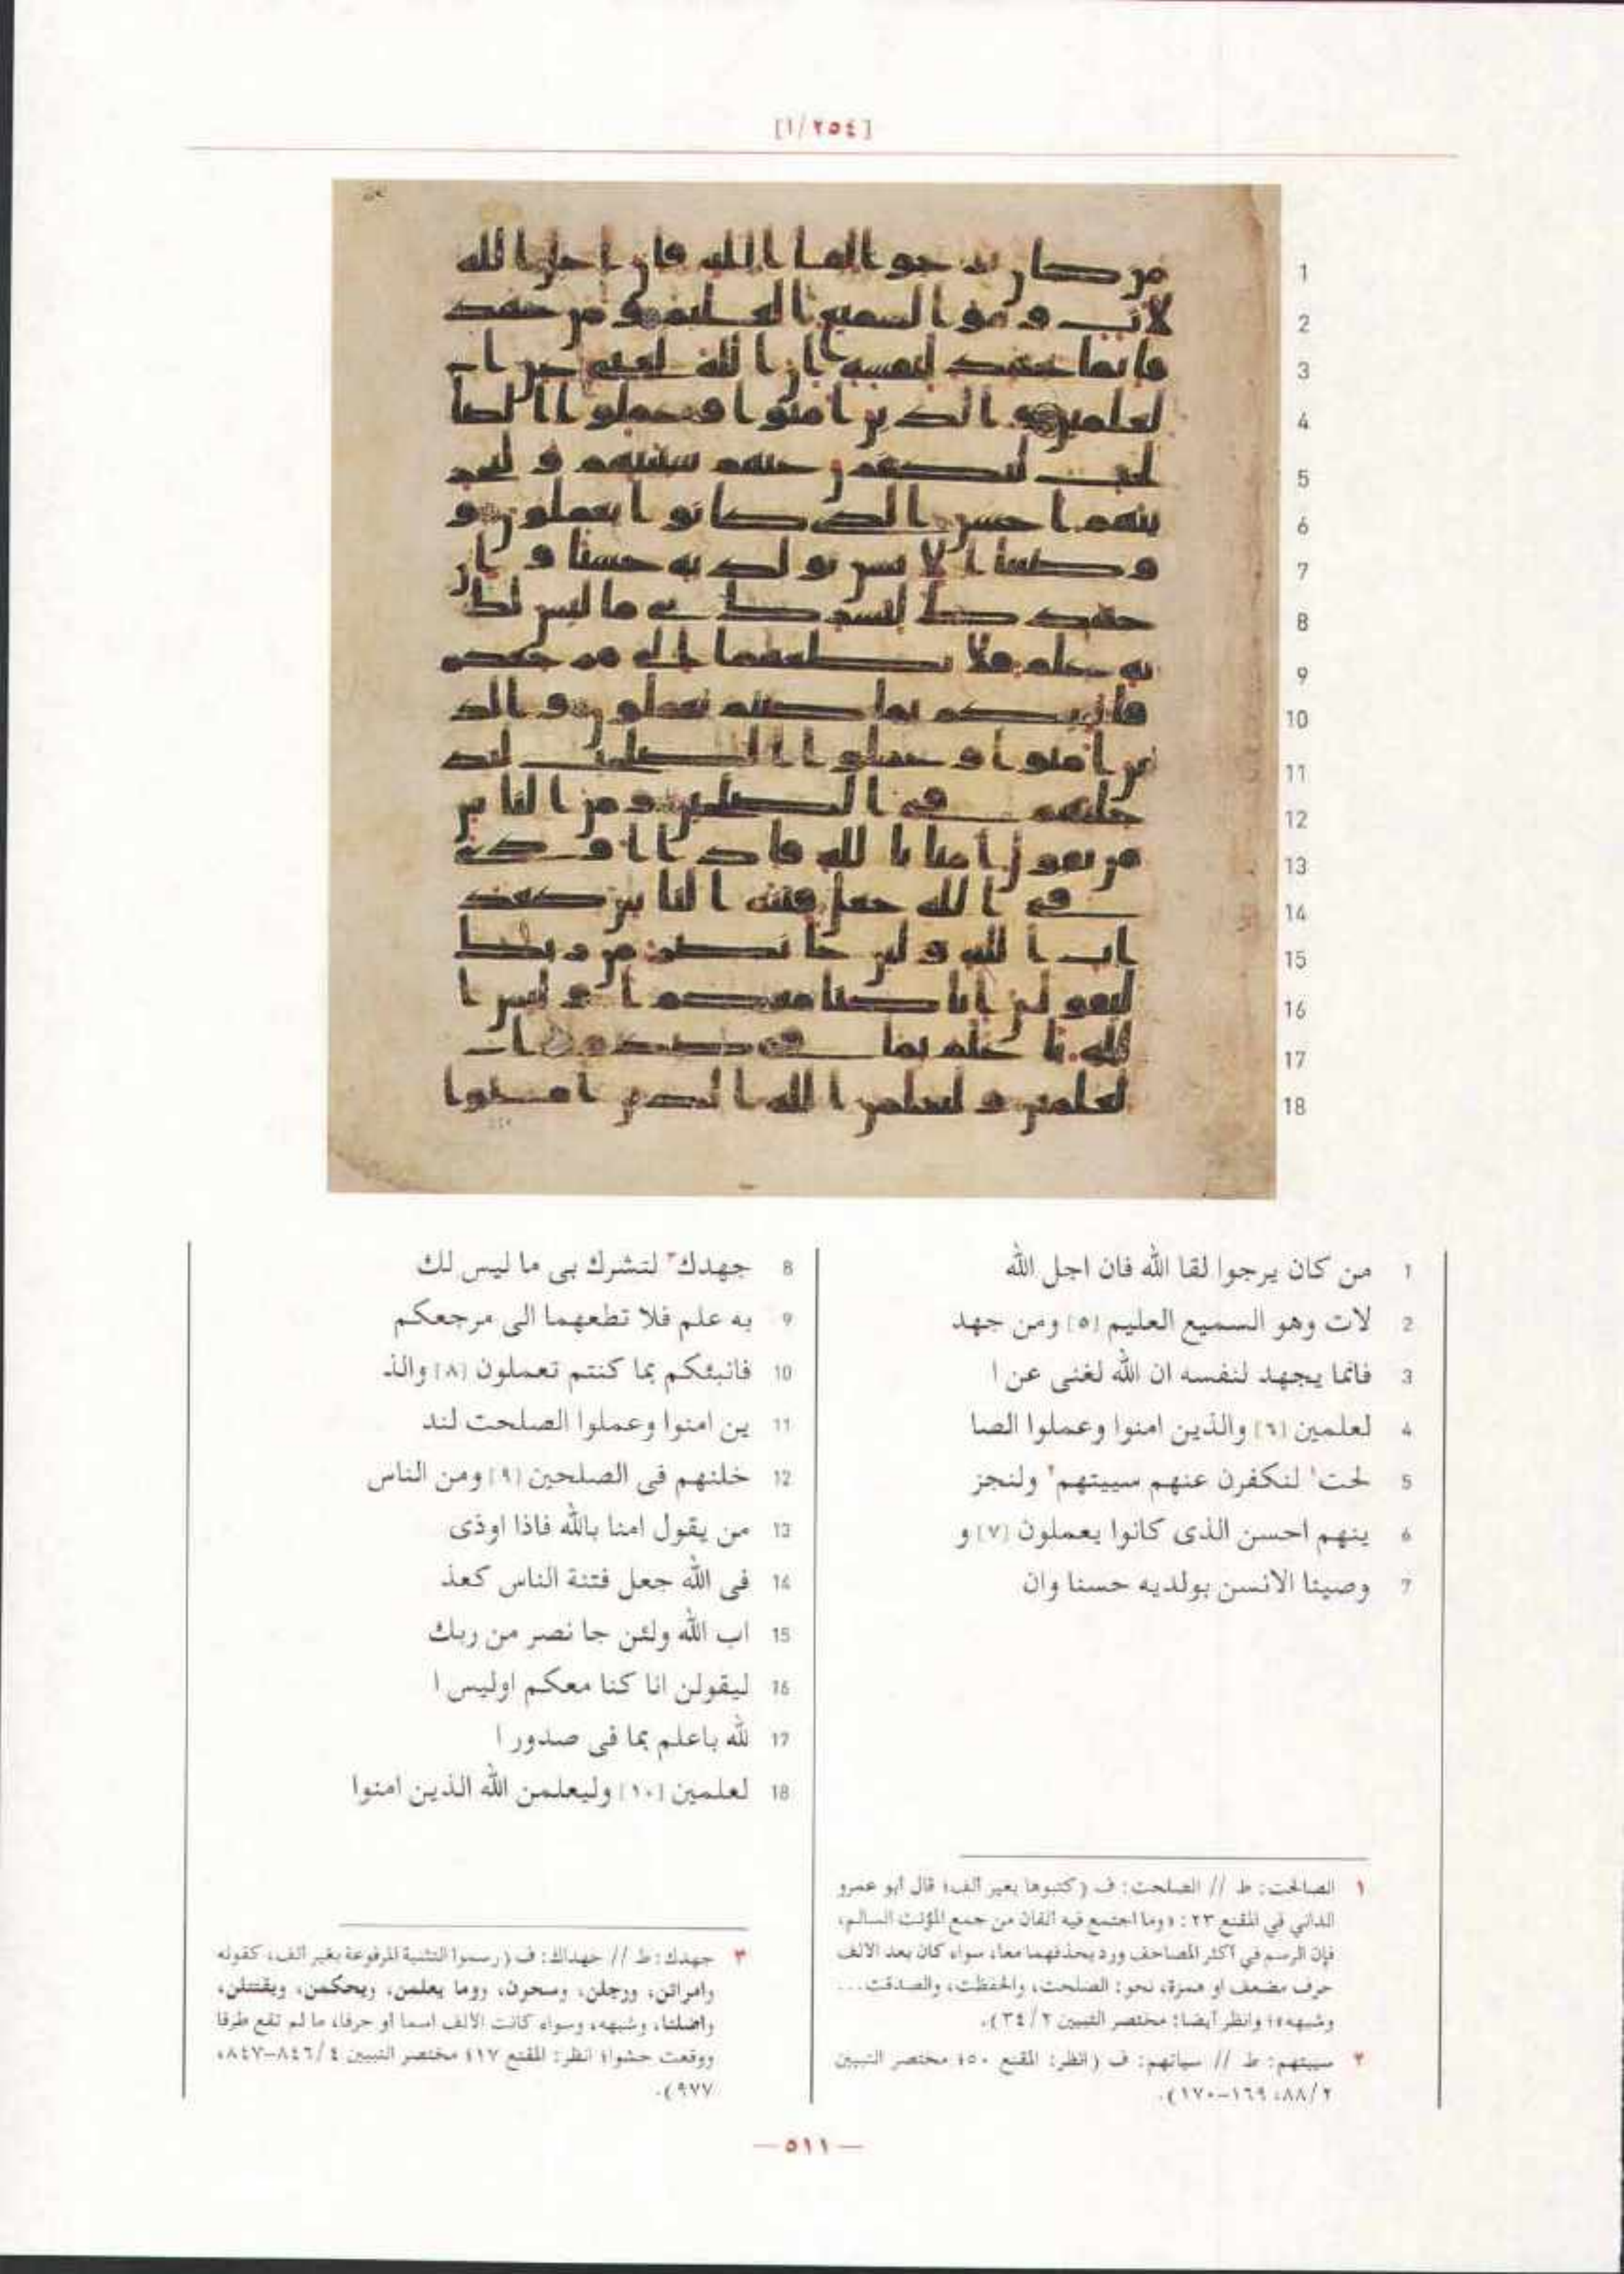 [١/٢٥٤]
1 من كان يرجوا لقا الله فان اجل الله
2 لات وهو السميع العليم [٥] ومن جهد
3 فانما يجهد لنفسه ان الله لغنى عن ا
4 لعلمين [٦] والذين امنوا وعملوا الصا
5 لحت١ لنكفرن عنهم سييتهم٢ ولنجز
6 ينهم احسن الذى كانوا يعملون [٧] و
7 وصينا الانسن بولديه حسنا وان
8 جهدك٣ لتشرك بى ما ليس لك
9 به علم فلا تطعهما الى مرجعكم
10 فانبئكم بما كنتم تعملون [٨] والذ
11 ين امنوا وعملوا الصلحت لند
12 خلنهم فى الصلحين [٩] ومن الناس
13 من يقول امنا بالله فاذا اوذى
14 فى الله جعل فتنة الناس كعذ
15 اب الله ولئن جا نصر من ربك
16 ليقولن انا كنا معكم اوليس ا
17 لله باعلم بما فى صدور ا
18 لعلمين [١٠] وليعلمن الله الذين امنوا
١ الصالحت: ط // الصلحت: ف (كتبوها بغير ألف؛ قال أبو عمرو
الداني في المقنع ٢٣: «وما اجتمع فيه ألفان من جمع المؤنث السالم،
فإن الرسم في أكثر المصاحف ورد بحذفهما معا، سواء كان بعد الألف
حرف مضعف أو همزة، نحو: الصلحت، والحفظت، والصدقت...
وشبهه»؛ وانظر أيضا: مختصر التبيين ٢/ ٣٤).
٢ سييتهم: ط // سياتهم: ف (انظر: المقنع ٥٠؛ مختصر التبيين
٢/ ٨٨، ١٦٩-١٧٠).
٣ جهدك: ط // جهداك: ف (رسموا التثنية المرفوعة بغير ألف، كقوله
وامراتن، ورجلن، وسحرن، وما يعلمن، ويحكمن، ويقتتلن،
واضلنا، وشبهه، وسواء كانت الألف اسما أو حرفا، ما لم تقع طرفا
ووقعت حشوا؛ انظر: المقنع ١٧؛ مختصر التبيين ٤/ ٨٤٦-٨٤٧،
٩٧٧).
— ٥١١ —